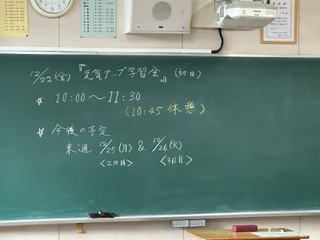 12/22(金)『元気アップ学習会』(初日)
* 10:00〜11:30
(10:45 休憩)
* 今後の予定
来週 12/25(月) & 12/26(火)
<2日目> <3日目>